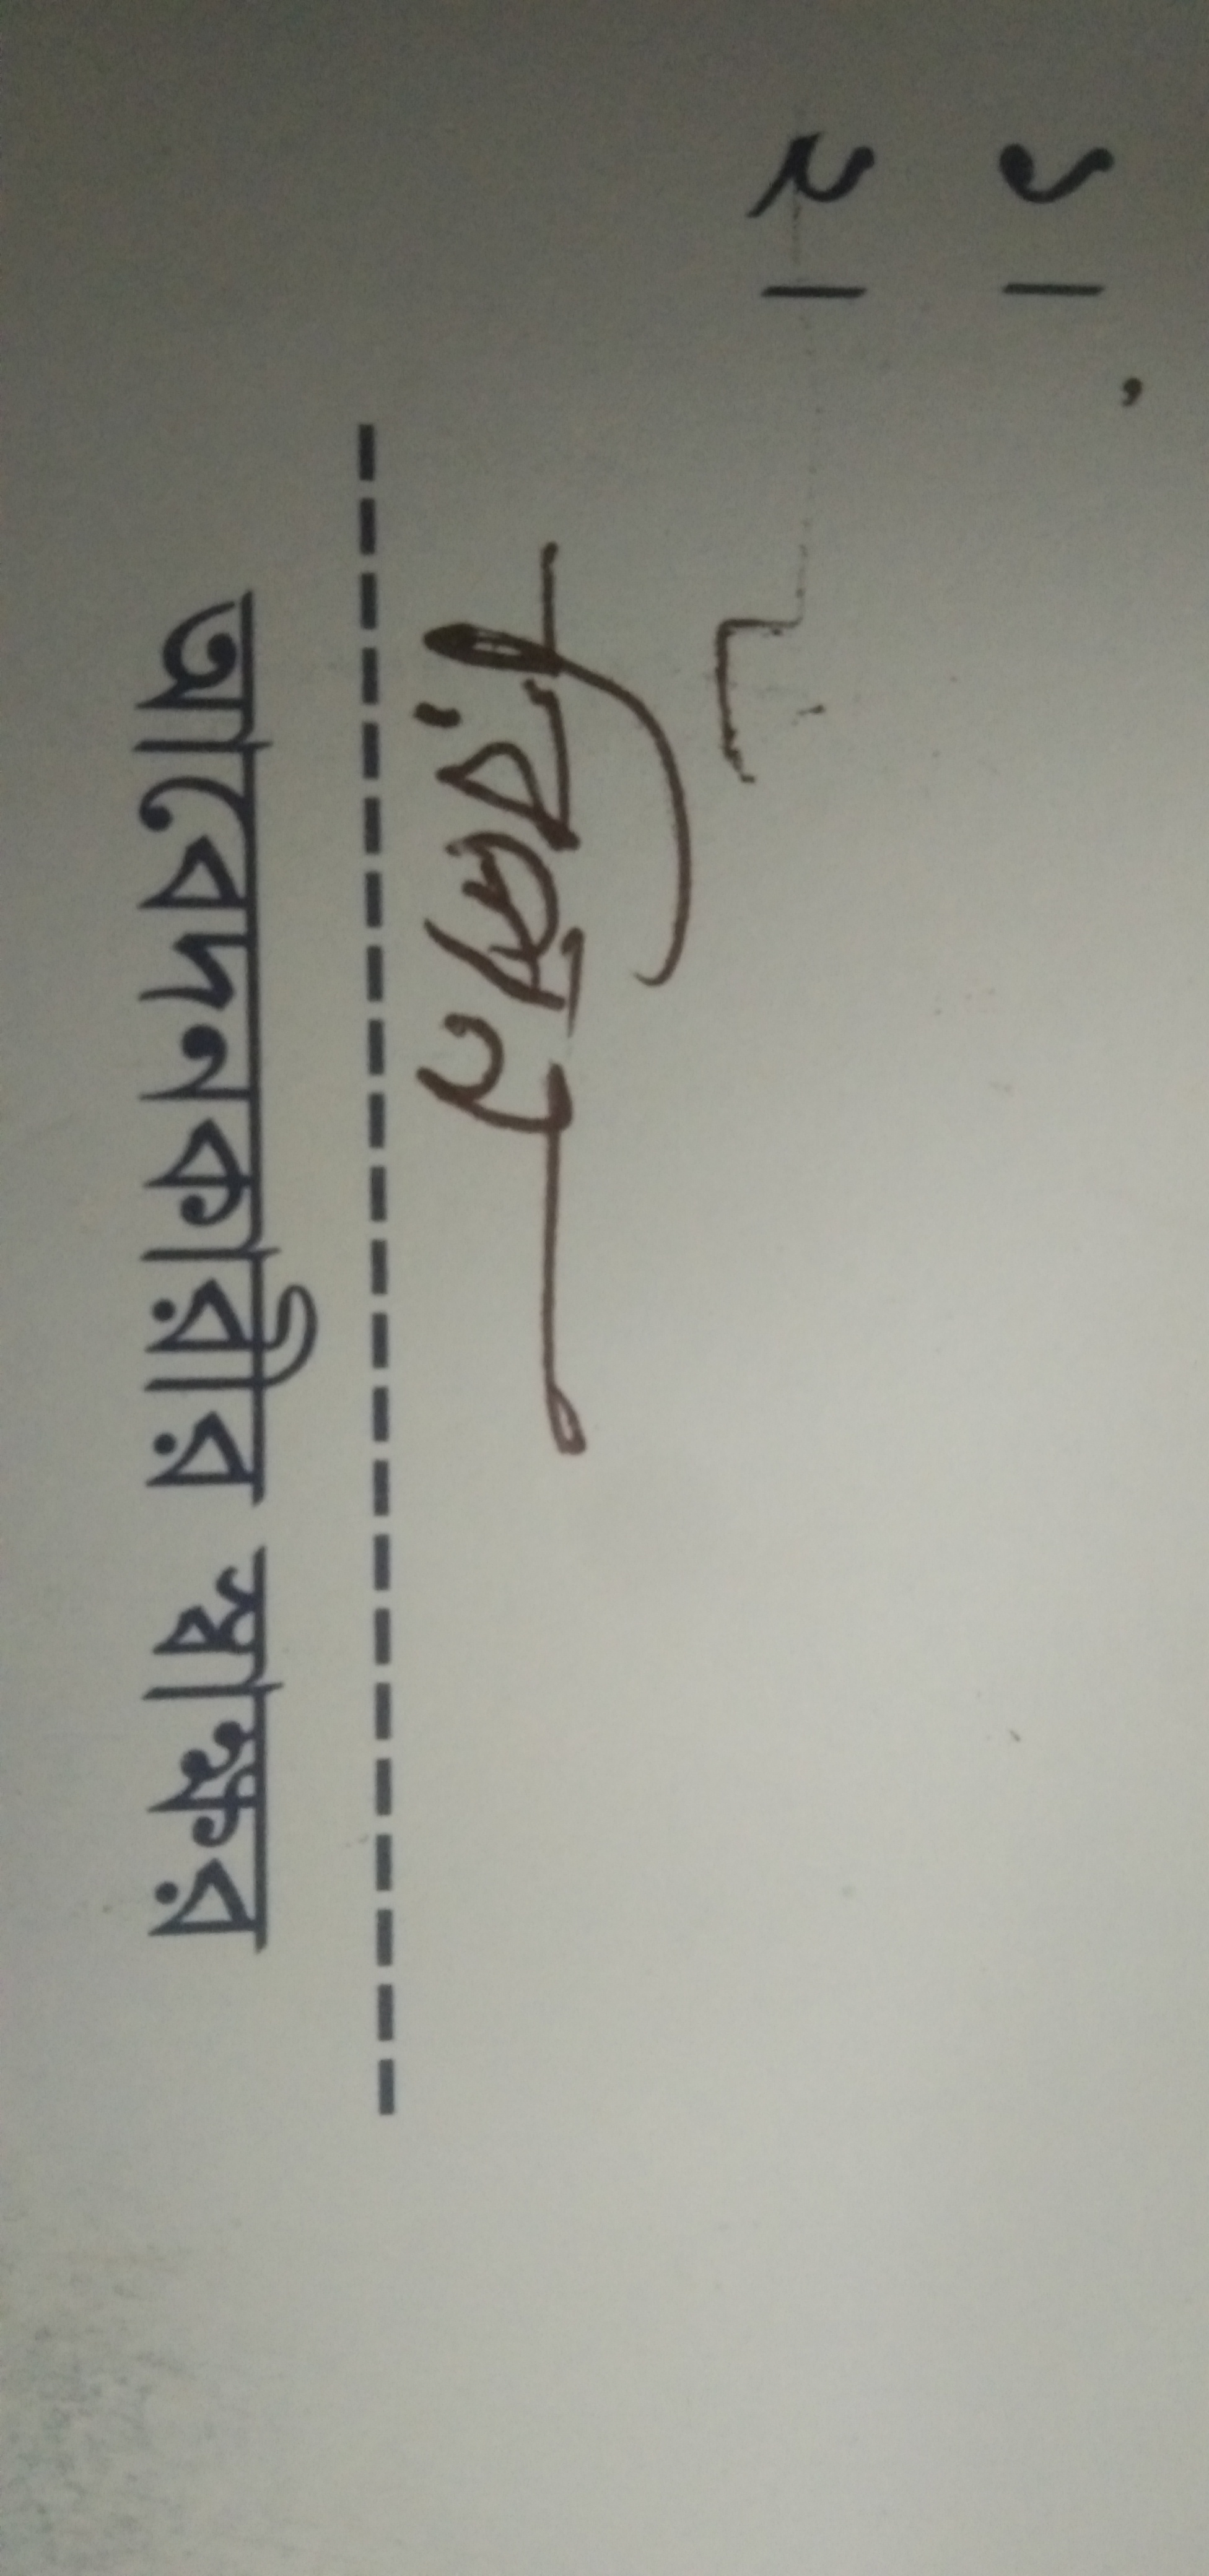 ১।
২।
রিপন
আবেদনকারীর স্বাক্ষর